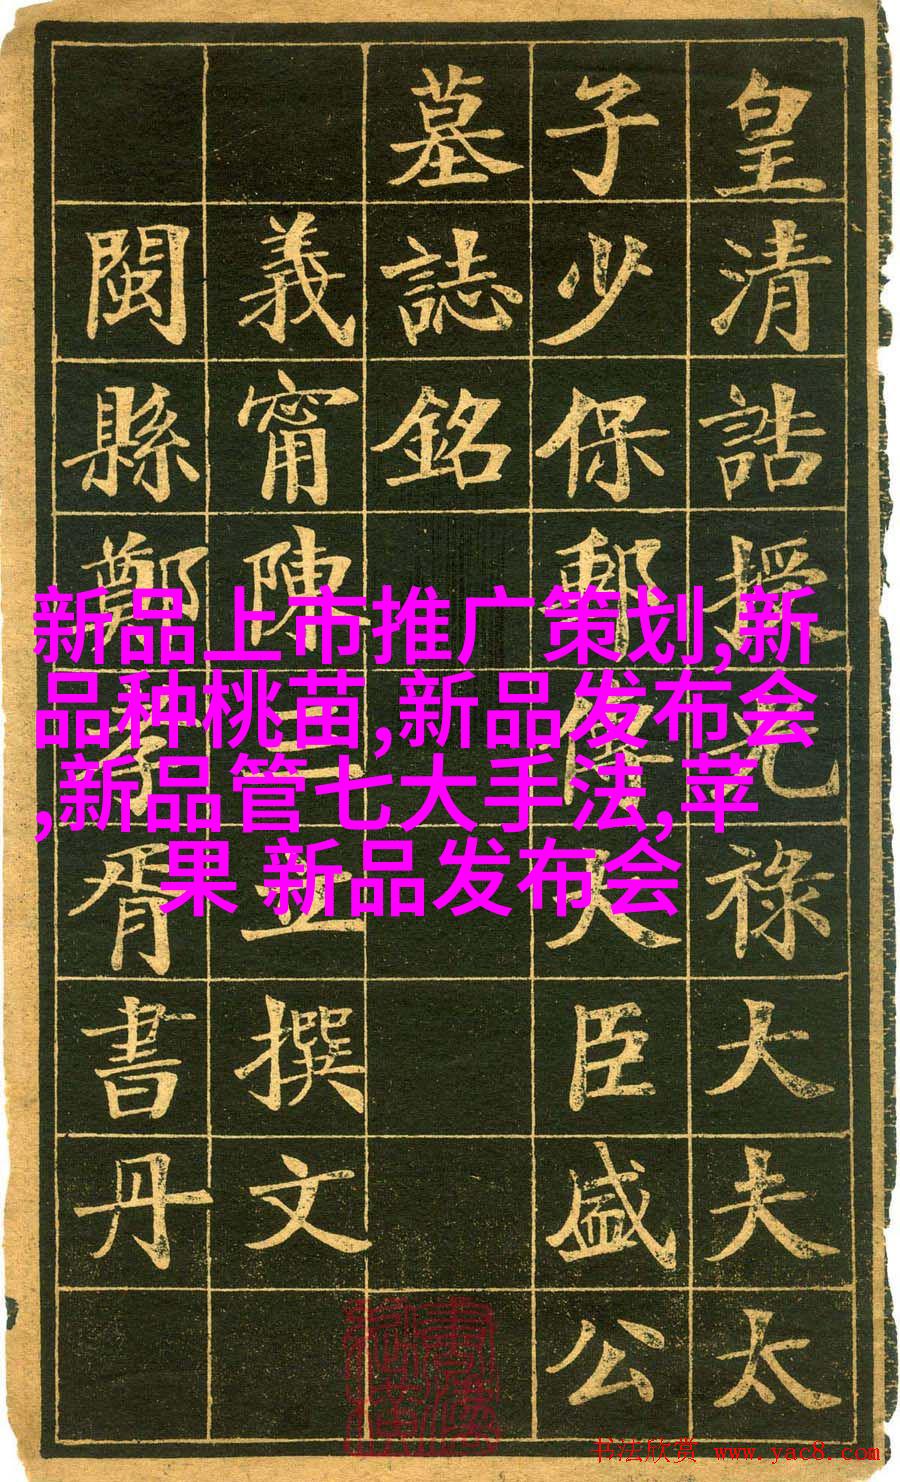 皇清誥授光祿大夫太
子少保郵傳大臣盛公
墓誌銘
義甯陳三立撰文
閩縣鄭孝胥書丹
新品上市推广策划,新
品种桃苗,新品发布会
,新品管七大手法,苹
果 新品发布会
书法欣赏 www.yac8.com